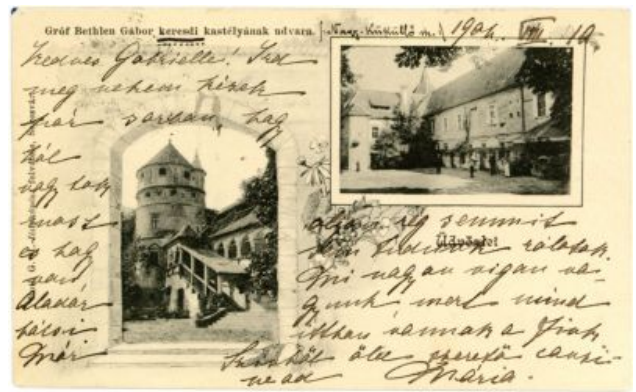 Gróf Bethlen Gábor keresdi kastélyának udvara. (Nagy-Küküllő m.) 1904. 10
Kedves Gabrielle! Ird
meg nekem kérlek
pár sorban, hogy
hol
vagytok
most
és hogy
van
Aladár
bácsi
Üdvözlet
olyan rég semmit
nem tudunk rólatok.
Mi nagyon vigan va-
gyunk mert mind
itthon vannak a fiuk
ölel szerető
Mária.